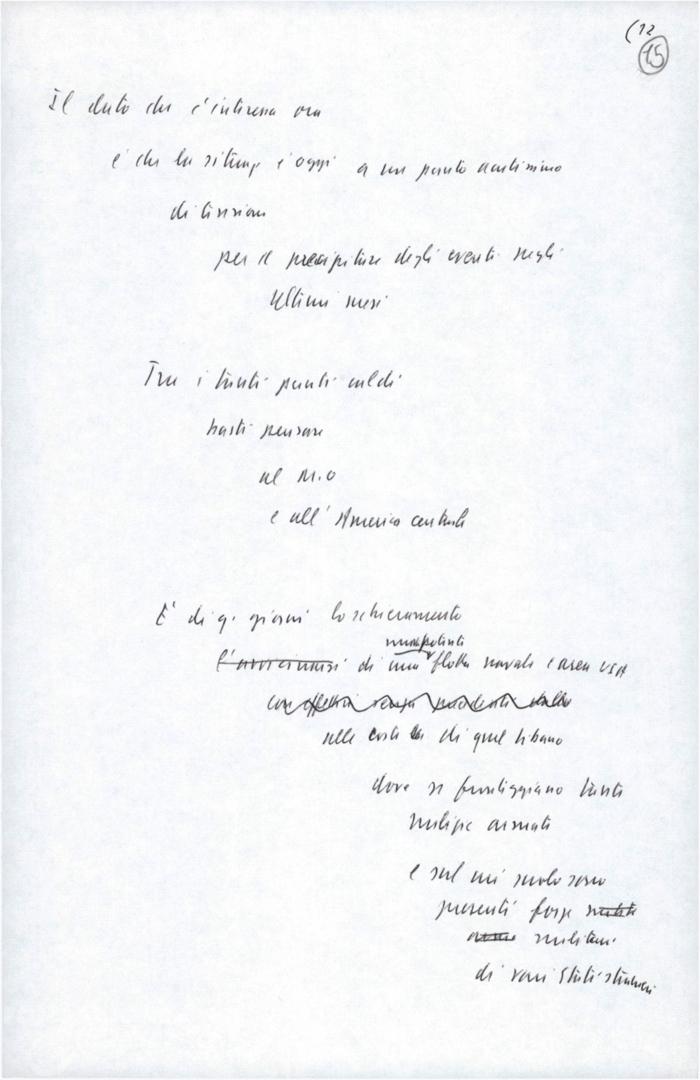 (12
15
Il dato che c'interessa ora
è che la situaz è oggi a un punto acutissimo
di tensione
per il precipitare degli eventi negli
ultimi mesi
Tra i tanti punti caldi
basti pensare
al M.O
e all'America centrale
È di q. giorni lo schieramento
una potente
l'avvicinarsi di una flotta navale e aerea USA
con effettivi senza precedenti
alle coste di quel Libano
dove si fronteggiano tante
milizie armate
e sul cui suolo sono
presenti forze
militari
di vari Stati stranieri